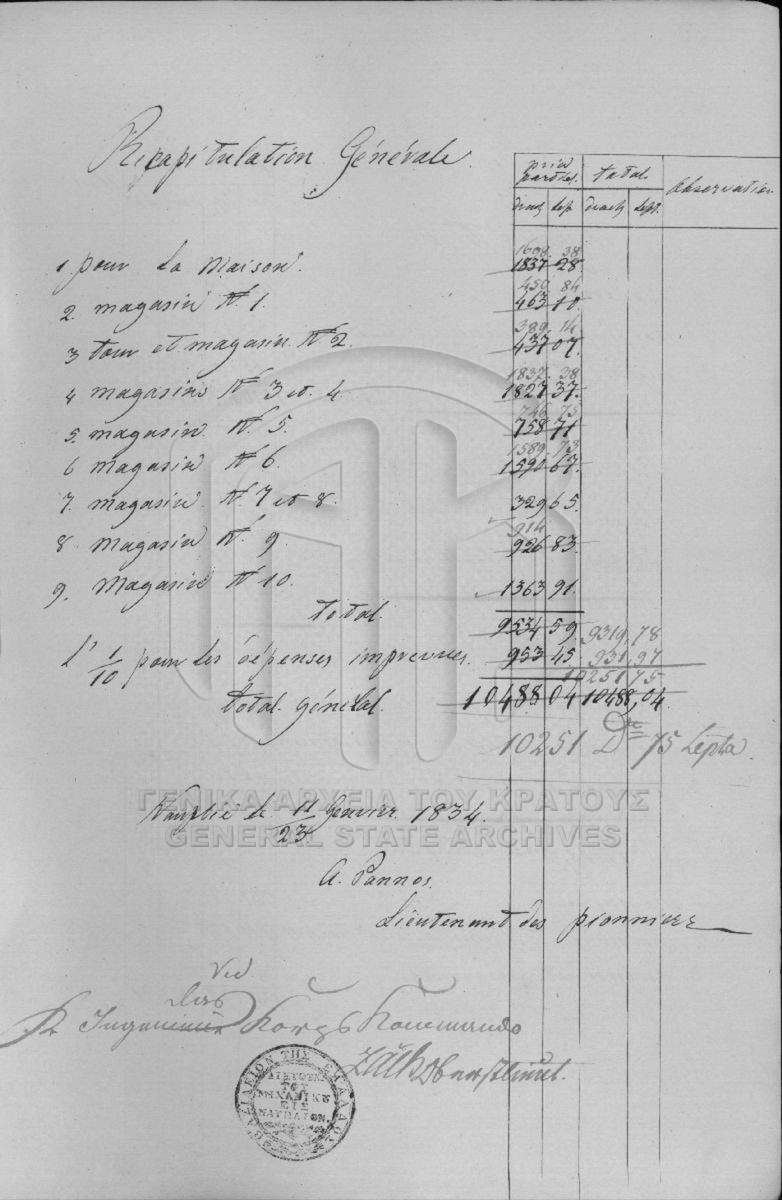 Recapitulation Générale.
prix partiel. total. Observation
drach lep drach lept.
1608. 38
1 pour la Maison. 1837 28
450 84
2. magasin No 1. 463 10
389. 14
3 tour et magasin No 2. 437 07
1832. 38
4 magasins No 3 et 4 1827 37.
746 75
5. magasin No 5. 758 71
1589. 73
6 magasin No 6. 1590 67.
7. magasin No 7 et 8. 329 65.
914
8 Magasin No 9 926 83.
9. Magasin No 10. 1363 91
total. 9534 59 9319, 78
l' 1/10 pour les dépenses imprevues. 953 45 931, 97
10251 75
total général. 10488 04 10488, 04
10251 D 75 Lepta
ΓΕΝΙΚΑ ΑΡΧΕΙΑ ΤΟΥ ΚΡΑΤΟΥΣ
GENERAL STATE ARCHIVES
Nauplie le 11/23 Janvier 1834.
A. Pannos.
Lieutenant des pionniers
Vu
das
Ingenieur Korps Kommando
Oberstlieut.
ΒΑΣΙΛΕΙΟΝ ΤΗΣ ΕΛΛΑΔΟΣ
ΤΟΥ
ΕΙΣ
ΝΑΥΠΛΙΟΝ.